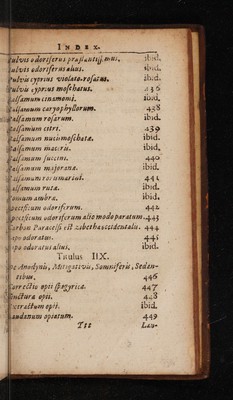 INDEX.
ulvis odoriferus præstantiss mus. ibid.
ulvis odoriferus alius. ibid.
ulvis cyprius violato-rosatus. ibid.
ulvis cyprius moschatus. 436
alsamum cinamomi. ibid.
alsamum caryophyllorum. 438
alsamum rosarum. ibid.
alsamum citri. 439
alsamum nucis moschatæ. ibid.
alsamum maceris. ibid.
alsamum succini. 440
alsamum majoranæ. ibid.
alsamum rorismarini. 441
alsamum rutæ. ibid.
omum ambræ. ibid.
pecificum odoriferum. 442
pecificum odoriferum alio modo paratum. 443
arbon Paracelsi est zibetha occidentalis. 444
apo odoratus. 445
apo odoratus alius. ibid.
Titulus IIX.
De Anodynis, Mitigativis, Somniferis, Seden-
tibus. 446
Correctio opii spagyrica. 447
inctura opii. 448
xtractum opii. ibid.
audanum opiatum. 449
Ttt Lau-